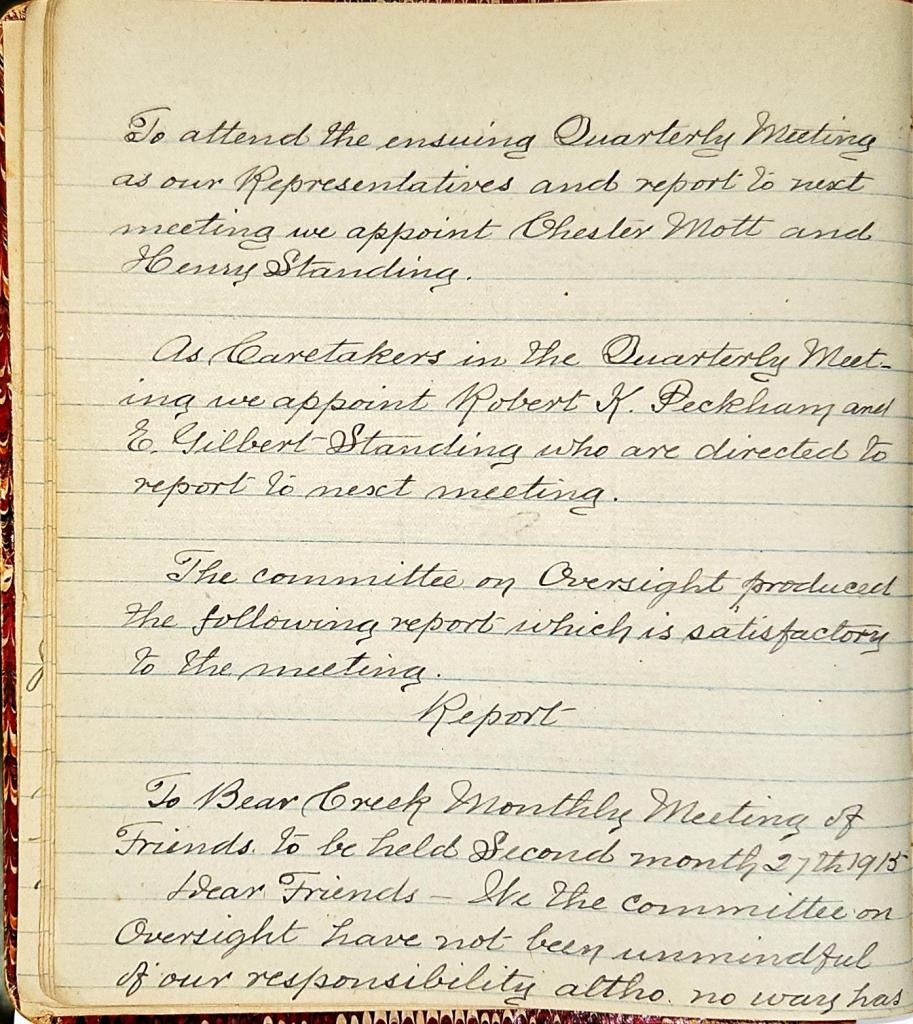 To attend the ensuing Quarterly Meeting
as our Representatives and report to next
meeting we appoint Chester Mott and
Henry Standing.
As Caretakers in the Quarterly Meet-
ing we appoint Robert K. Peckham and
E. Gilbert Standing who are directed to
report to next meeting.
The committee on Oversight produced
the following report which is satisfactory
to the meeting.
Report
To Bear Creek Monthly Meeting of
Friends. to be held Second month 27th 1915
Dear Friends – We the committee on
Oversight have not been unmindful
of our responsibility altho. no way has